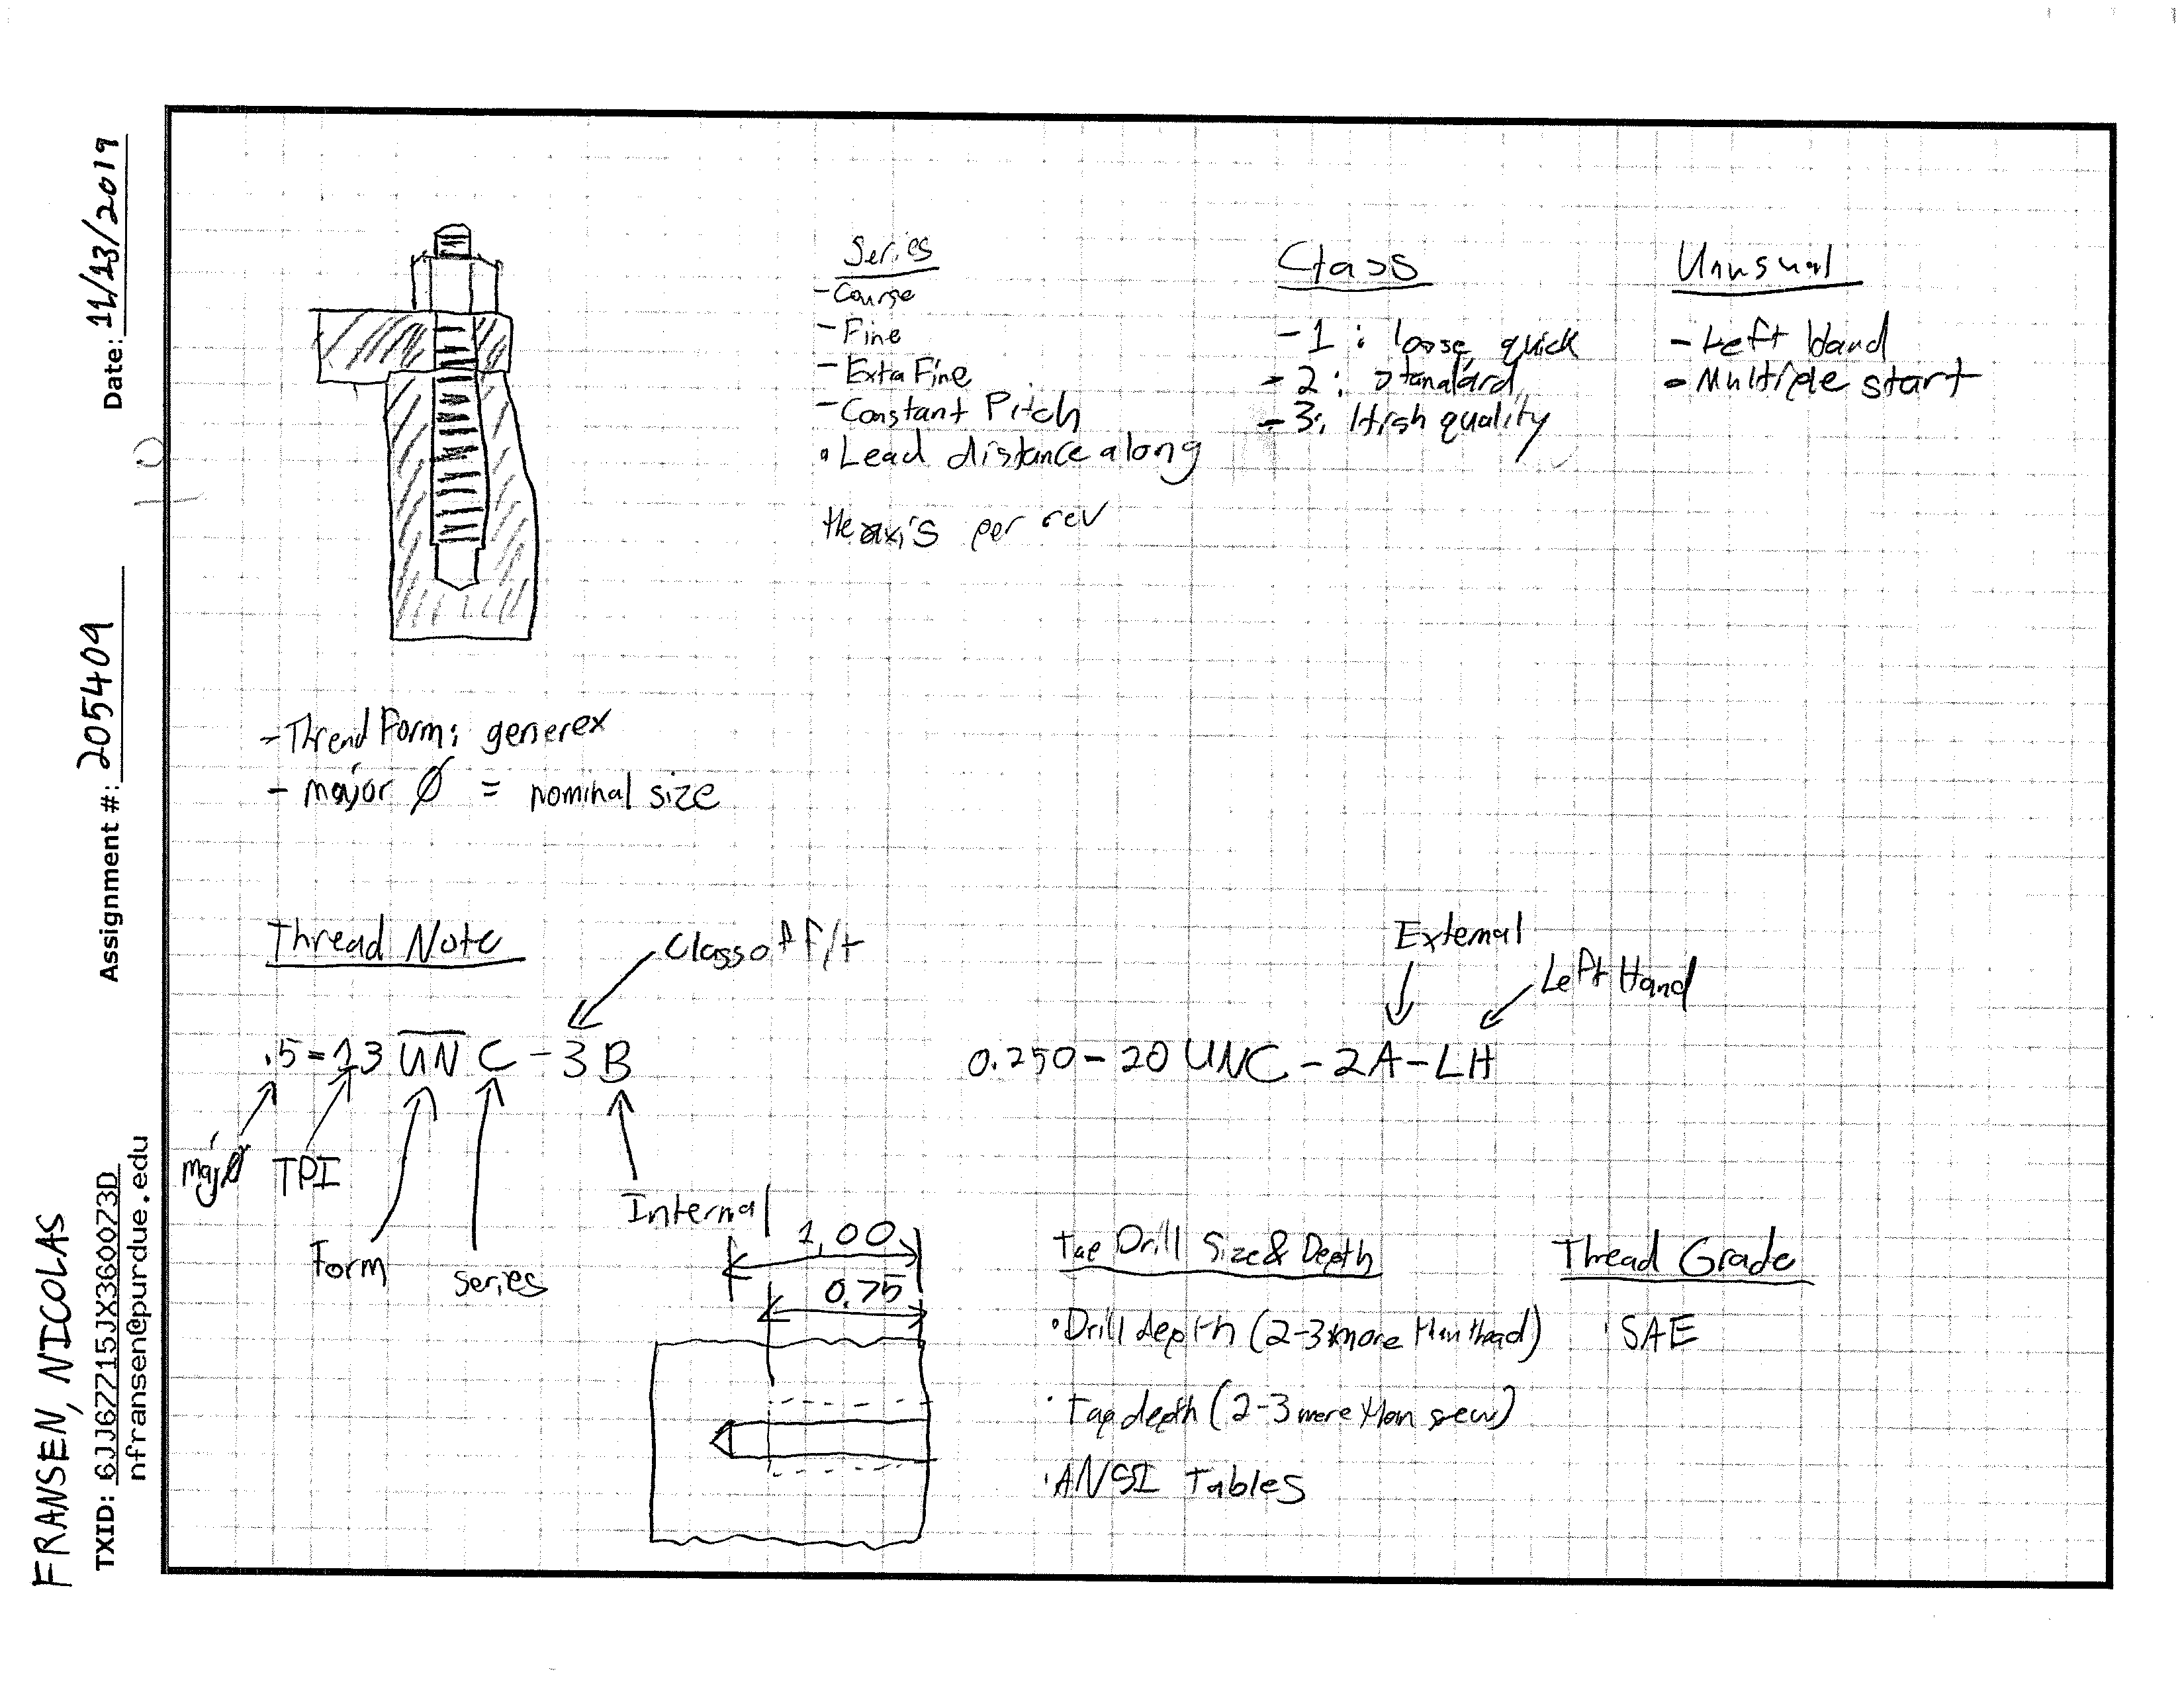 FRANSEN, NICOLAS
TXID:
nfransen@purdue.edu
Assignment #: 205409
Date: 11/13/2019
Series
- Course
- Fine
- Extra Fine
- Constant Pitch
• Lead distance along
the axis per rev
Class
- 1: loose, quick
- 2: standard
- 3: High quality
Unusual
- Left Hand
- Multiple start
- Thread Form: generex
- major Ø = nominal size
Thread Note
Class of fit
.5 = 13 UN C - 3 B
maj Ø
TPI
Form
series
Internal
External
Left Hand
0.250 - 20 UNC - 2A - LH
1.00
0.75
Tap Drill Size & Depth
• Drill depth (2-3 more than thead)
• Tap depth (2-3 more than
• ANSI Tables
Thread Grade
• SAE